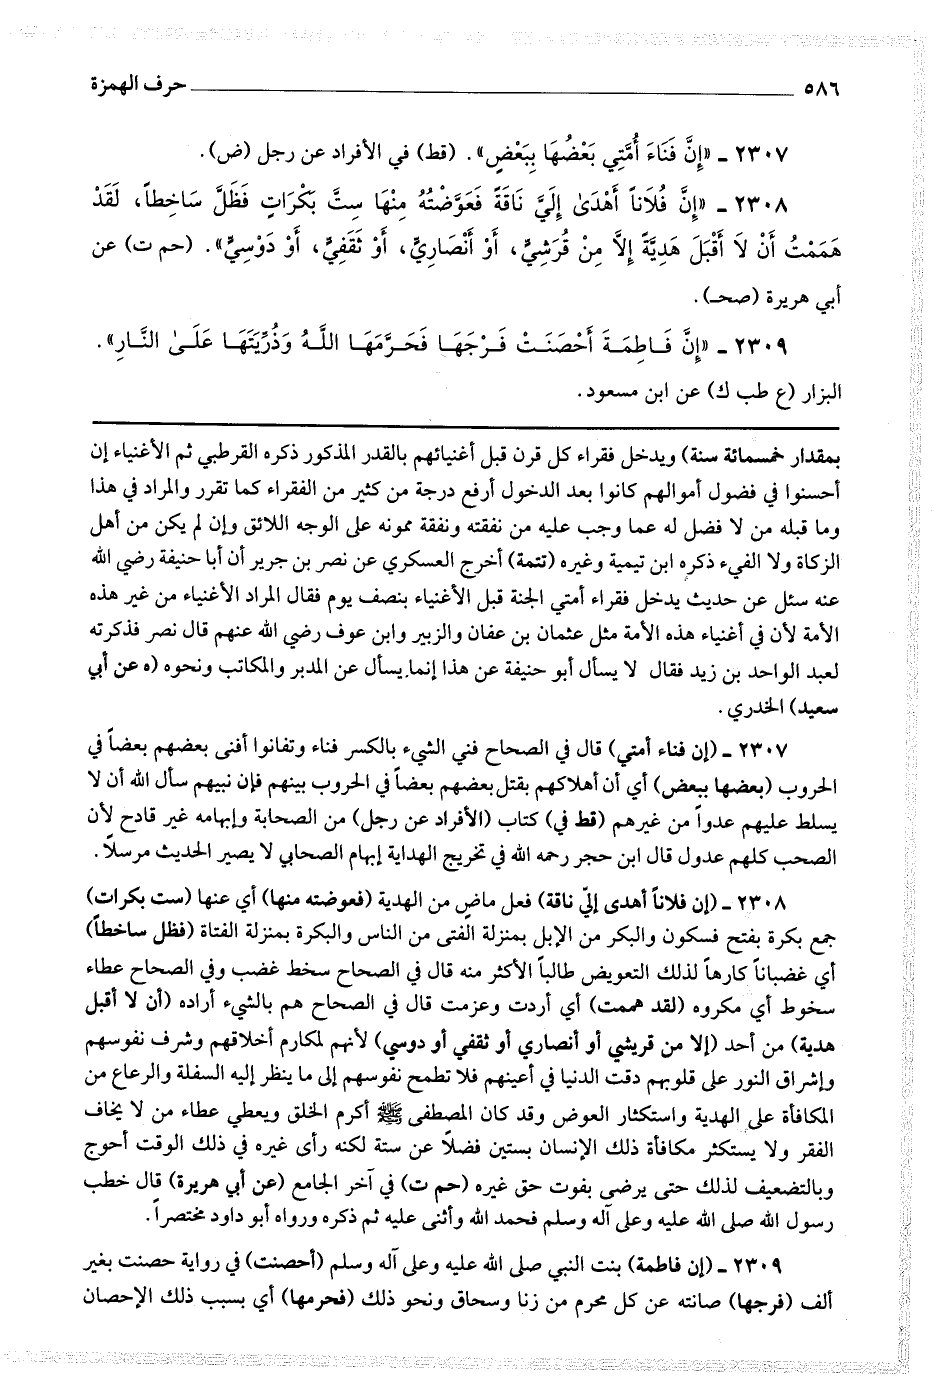 ٥٨٦ حرف الهمزة
٢٣٠٧ ـ «إِنَّ فَنَاءَ أُمَّتِي بَعْضُهَا بِبَعْضٍ». (قط) في الأفراد عن رجل (ض).
٢٣٠٨ ـ «إِنَّ فُلَاناً أَهْدَىٰ إِلَيَّ نَاقَةً فَعَوَّضْتُهُ مِنْهَا سِتَّ بَكْرَاتٍ فَظَلَّ سَاخِطاً، لَقَدْ
هَمَمْتُ أَنْ لَا أَقْبَلَ هَدِيَّةً إِلَّا مِنْ قُرَشِيٍّ، أَوْ أَنْصَارِيٍّ، أَوْ ثَقَفِيٍّ، أَوْ دَوْسِيٍّ». (حم ت) عن
أبي هريرة (صحـ).
٢٣٠٩ ـ «إِنَّ فَاطِمَةَ أَحْصَنَتْ فَرْجَهَا فَحَرَّمَهَا اللَّهُ وَذُرِّيَّتَهَا عَلَىٰ النَّارِ».
البزار (ع طب ك) عن ابن مسعود.
بمقدار خمسمائة سنة) ويدخل فقراء كل قرن قبل أغنيائهم بالقدر المذكور ذكره القرطبي ثم الأغنياء إن
أحسنوا في فضول أموالهم كانوا بعد الدخول أرفع درجة من كثير من الفقراء كما تقرر والمراد في هذا
وما قبله من لا فضل له عما وجب عليه من نفقته ونفقة ممونه على الوجه اللائق وإن لم يكن من أهل
الزكاة ولا الفيء ذكره ابن تيمية وغيره (تتمة) أخرج العسكري عن نصر بن جرير أن أبا حنيفة رضي الله
عنه سئل عن حديث يدخل فقراء أمتي الجنة قبل الأغنياء بنصف يوم فقال المراد الأغنياء من غير هذه
الأمة لأن في أغنياء هذه الأمة مثل عثمان بن عفان والزبير وابن عوف رضي الله عنهم قال نصر فذكرته
لعبد الواحد بن زيد فقال لا يسأل أبو حنيفة عن هذا إنما يسأل عن المدبر والمكاتب ونحوه (ه عن أبي
سعيد) الخدري.
٢٣٠٧ ـ (إن فناء أمتي) قال في الصحاح فني الشيء بالكسر فناء وتفانوا أفنى بعضهم بعضاً في
الحروب (بعضها ببعض) أي أن أهلاكهم بقتل بعضهم بعضاً في الحروب بينهم فإن نبيهم سأل الله أن لا
يسلط عليهم عدواً من غيرهم (قط في) كتاب (الأفراد عن رجل) من الصحابة وإبهامه غير قادح لأن
الصحب كلهم عدول قال ابن حجر رحمه الله في تخريج الهداية إبهام الصحابي لا يصير الحديث مرسلاً.
٢٣٠٨ ـ (إن فلاناً أهدى إليّ ناقة) فعل ماضٍ من الهدية (فعوضته منها) أي عنها (ست بكرات)
جمع بكرة بفتح فسكون والبكر من الإبل بمنزلة الفتى من الناس والبكرة بمنزلة الفتاة (فظل ساخطاً)
أي غضباناً كارهاً لذلك التعويض طالباً الأكثر منه قال في الصحاح سخط غضب وفي الصحاح عطاء
سخوط أي مكروه (لقد هممت) أي أردت وعزمت قال في الصحاح هم بالشيء أراده (أن لا أقبل
هدية) من أحد (إلا من قريشي أو أنصاري أو ثقفي أو دوسي) لأنهم لمكارم أخلاقهم وشرف نفوسهم
وإشراق النور على قلوبهم دقت الدنيا في أعينهم فلا تطمح نفوسهم إلى ما ينظر إليه السفلة والرعاع من
المكافأة على الهدية واستكثار العوض وقد كان المصطفى ﷺ أكرم الخلق ويعطي عطاء من لا يخاف
الفقر ولا يستكثر مكافأة ذلك الإنسان بستين فضلاً عن ستة لكنه رأى غيره في ذلك الوقت أحوج
وبالتضعيف لذلك حتى يرضى بفوت حق غيره (حم ت) في آخر الجامع (عن أبي هريرة) قال خطب
رسول الله صلى الله عليه وعلى آله وسلم فحمد الله وأثنى عليه ثم ذكره ورواه أبو داود مختصراً.
٢٣٠٩ ـ (إن فاطمة) بنت النبي صلى الله عليه وعلى آله وسلم (أحصنت) في رواية حصنت بغير
ألف (فرجها) صانته عن كل محرم من زنا وسحاق ونحو ذلك (فحرمها) أي بسبب ذلك الإحصان